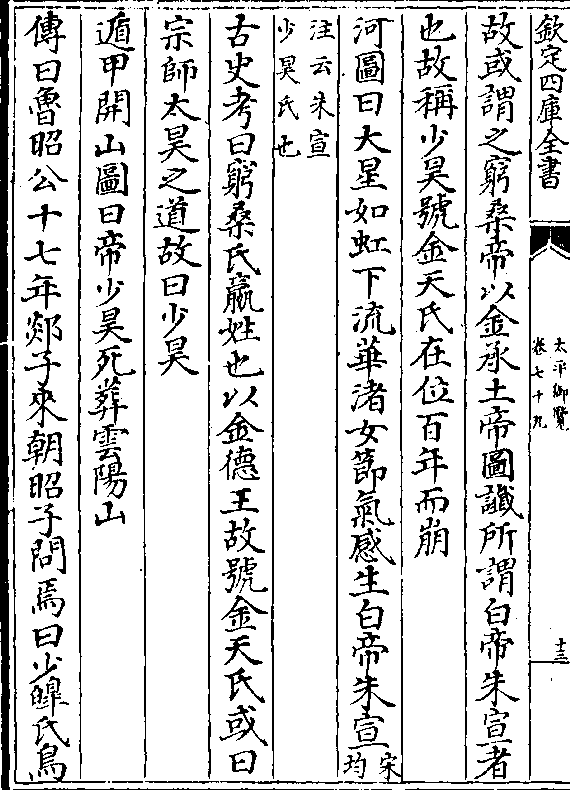 欽定四庫全書
太平御覽
卷七十九
十三
故或謂之窮桑帝以金承土帝圖讖所謂白帝朱宣者
也故稱少昊號金天氏在位百年而崩
河圖曰大星如虹下流華渚女節氣感生白帝朱宣宋均
注云朱宣
少昊氏也
古史考曰窮桑氏嬴姓也以金德王故號金天氏或曰
宗師太昊之道故曰少昊
遁甲開山圖曰帝少昊死葬雲陽山
傳曰魯昭公十七年郯子來朝昭子問焉曰少皥氏鳥